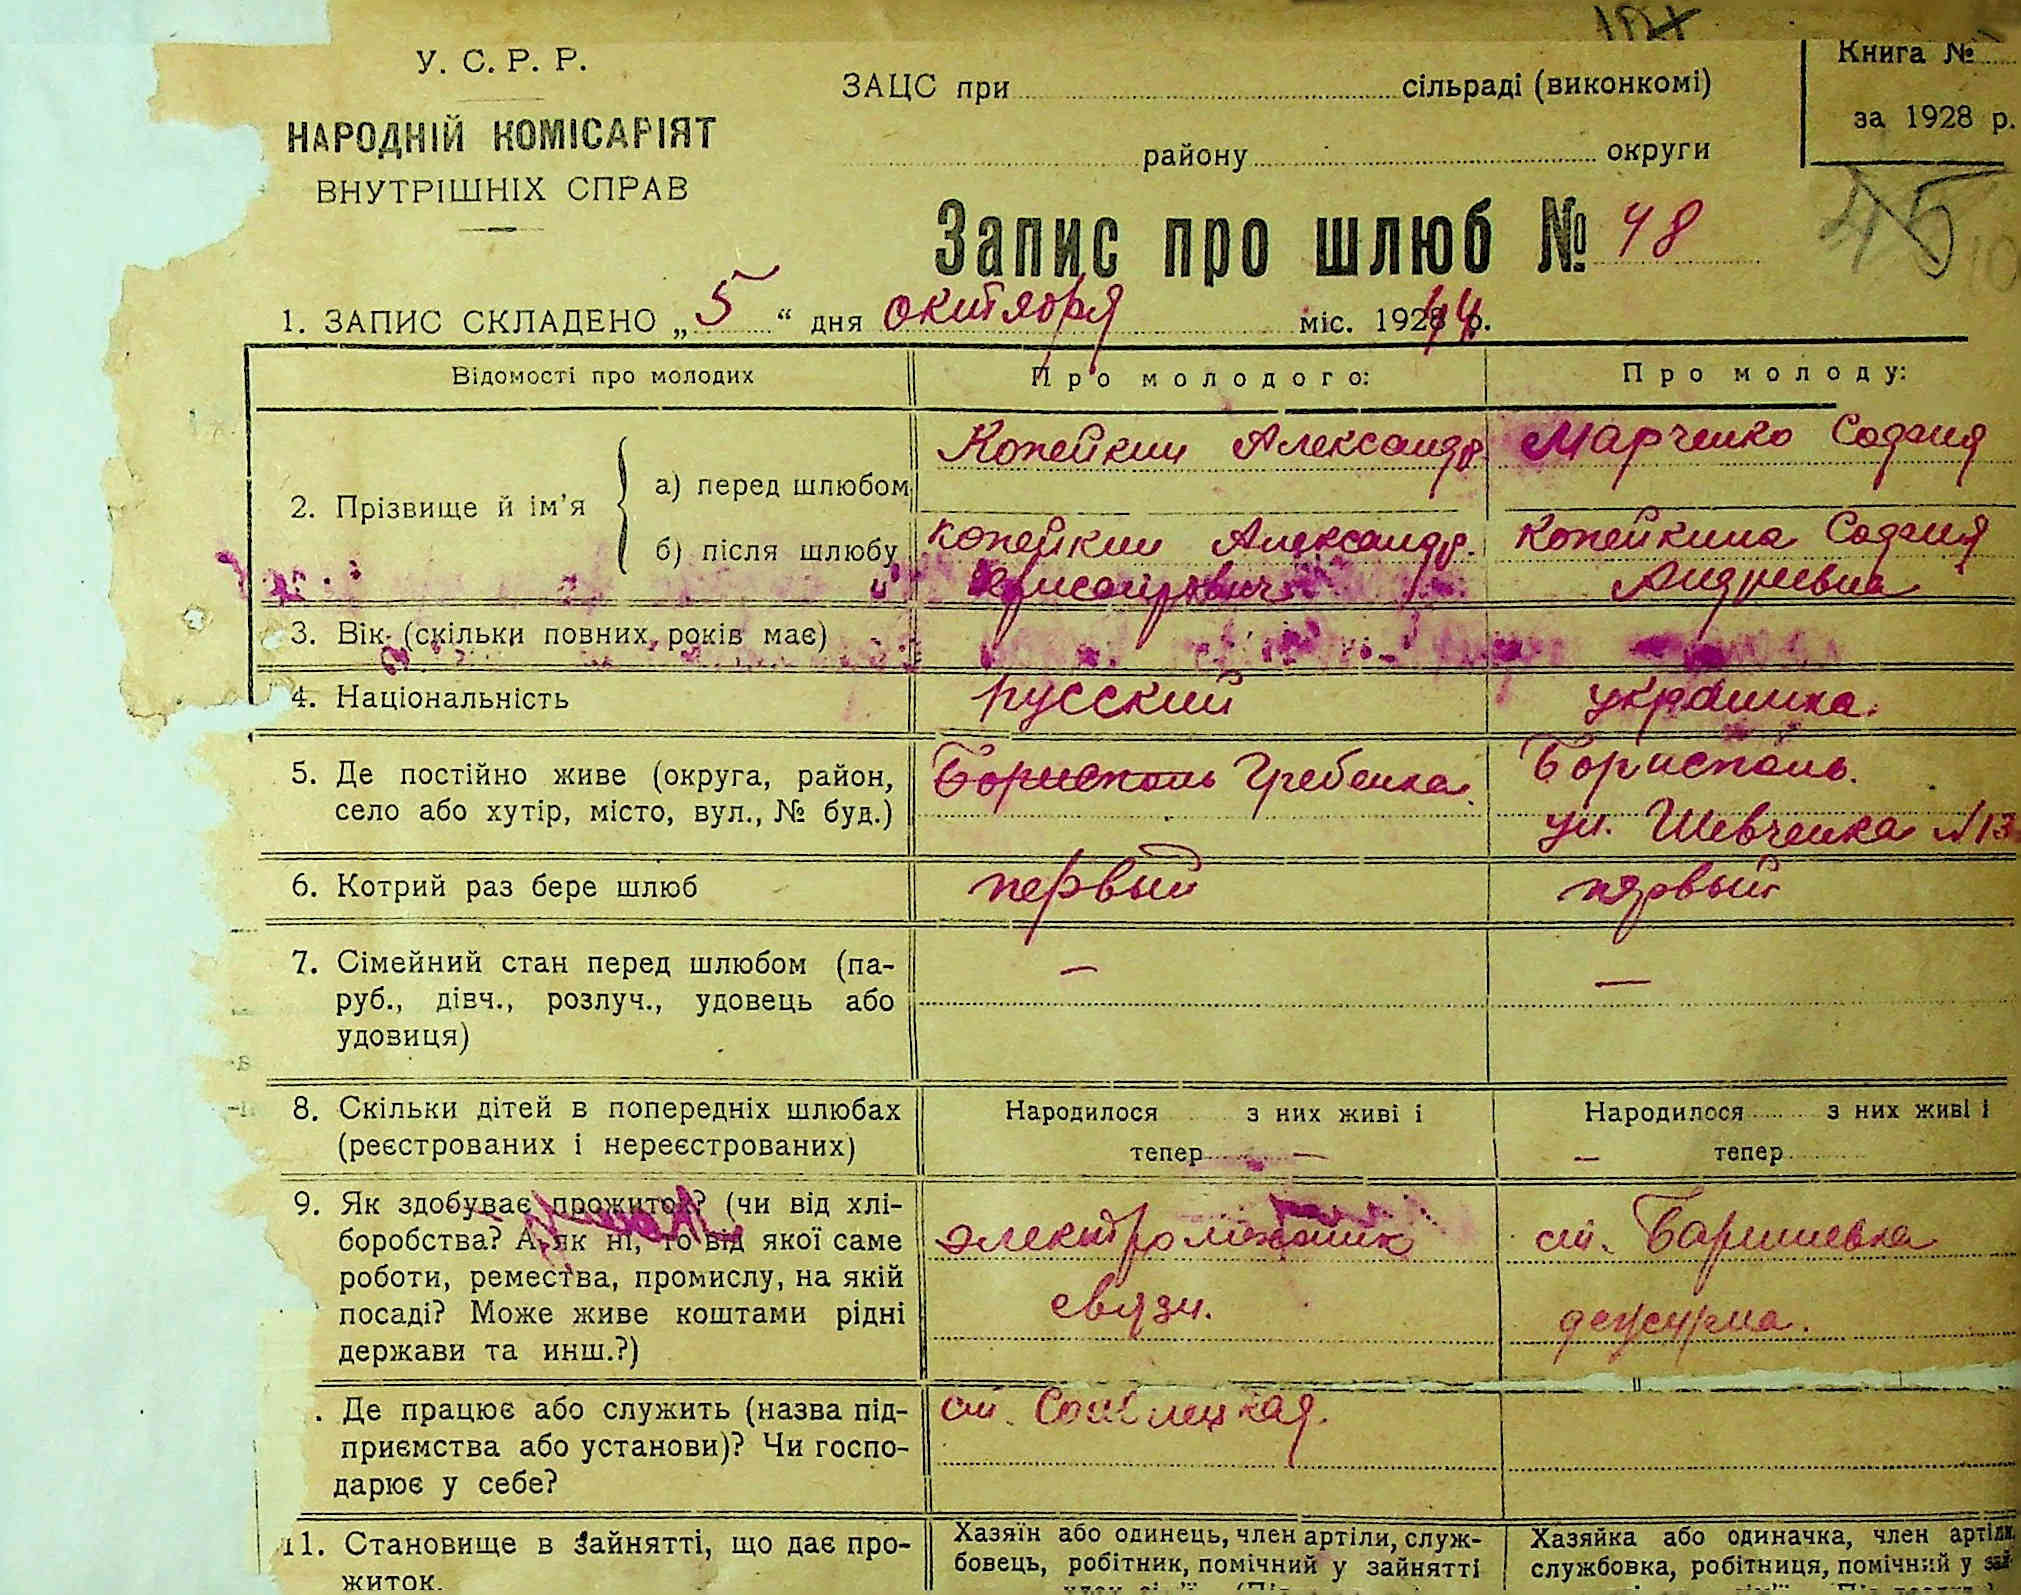 У. С. Р. Р.
НАРОДНІЙ КОМІСАРІЯТ
ВНУТРІШНІХ СПРАВ
ЗАЦС при сільраді (виконкомі)
району округи
Книга №
за 1928 р.
45
Запис про шлюб № 48
1. ЗАПИС СКЛАДЕНО „ 5 “ дня октября міс. 1928 44 р.
Відомості про молодих
Про молодого:
Про молоду:
2. Прізвище й ім’я
а) перед шлюбом
Копейкин Александр
Марченко София
б) після шлюбу
Копейкин Александр.
Копейкина София
Андреевна
3. Вік (скільки повних років має)
4. Національність
русский
украинка.
5. Де постійно живе (округа, район,
село або хутір, місто, вул., № буд.)
Борисполь Гребенка.
Борисполь.
ул. Шевченка №13
6. Котрий раз бере шлюб
первый
первый
7. Сімейний стан перед шлюбом (па-
руб., дівч., розлуч., удовець або
удовиця)
—
—
8. Скільки дітей в попередніх шлюбах
(реєстрованих і нереєстрованих)
Народилося з них живі і
тепер —
Народилося з них живі і
— тепер
9. Як здобуває прожиток? (чи від хлі-
боробства? А як ні, то від якої саме
роботи, ремества, промислу, на якій
посаді? Може живе коштами рідні
держави та инш.?)
электромеханик
связи.
ст. Баришевка
дежурна.
. Де працює або служить (назва під-
приємства або установи)? Чи госпо-
дарює у себе?
ст.
11. Становище в зайнятті, що дає про-
житок.
Хазяїн або одинець, член артіли, служ-
бовець, робітник, помічний у зайнятті
Хазяйка або одиначка, член артіли,
службовка, робітниця, помічний у зай-